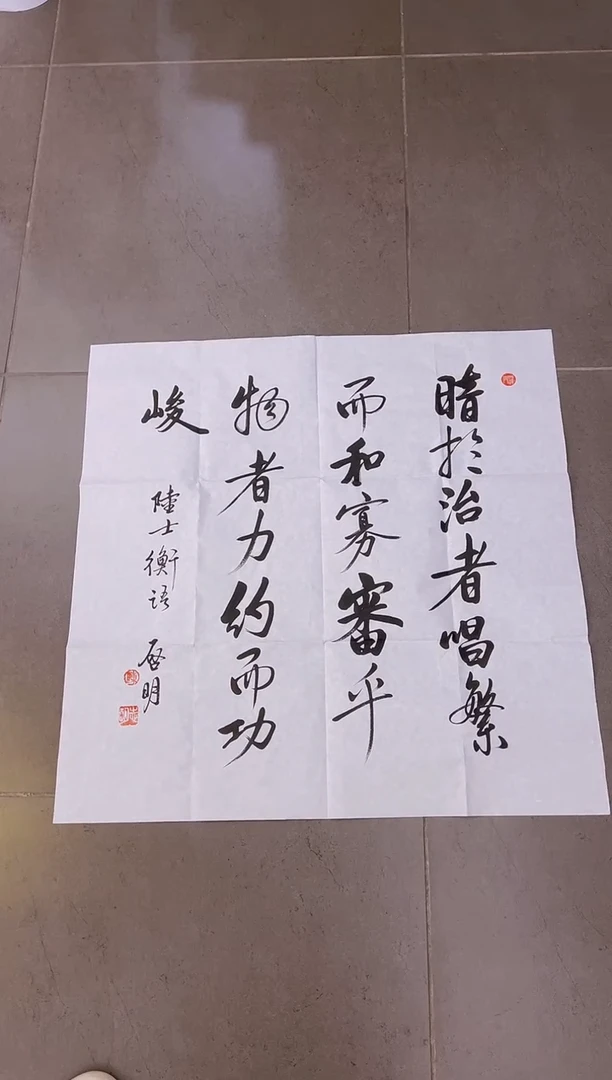 暗於治者唱繁
而和寡審乎
物者力约而功
峻
陸士衡语
启明